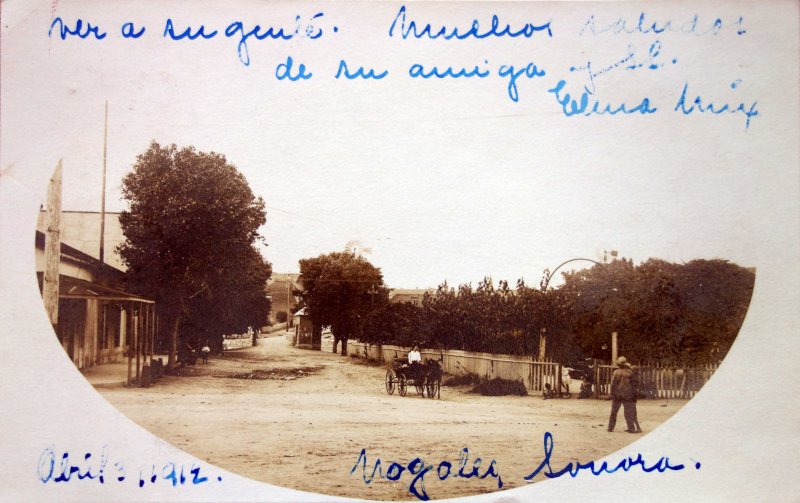 ver a su gente. Muchos saludos
de su amiga y SS.
Elena Mix
Abril 3, 1912.
Nogales, Sonora.